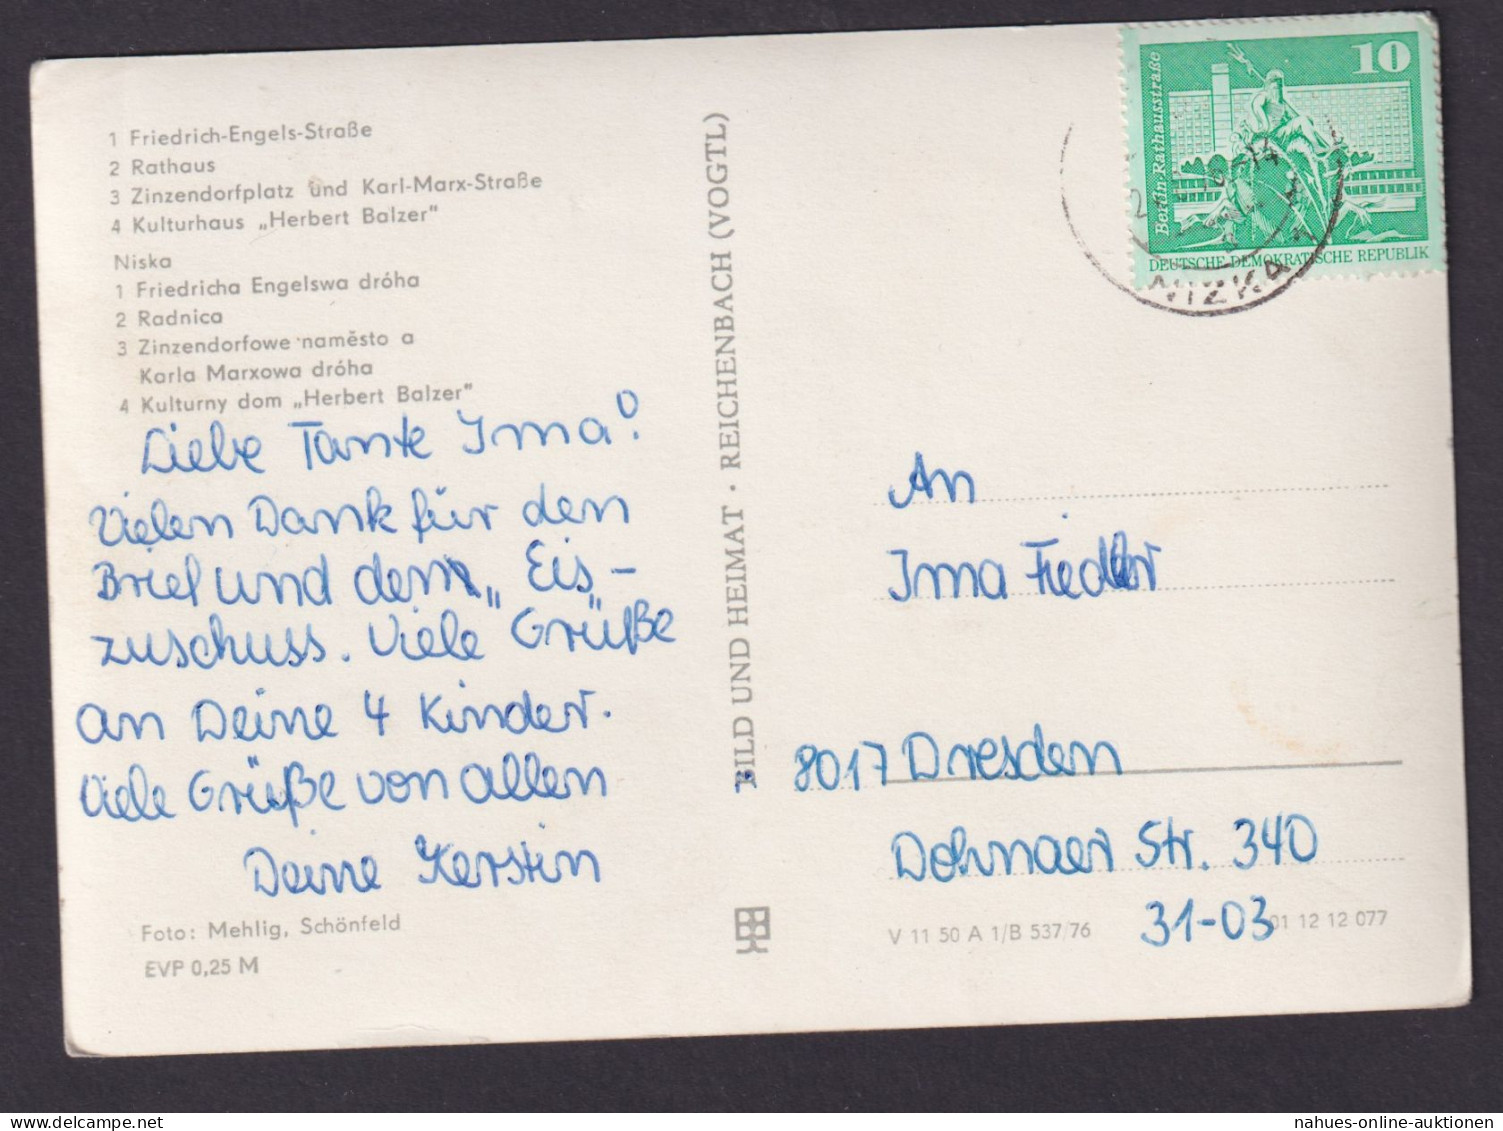 1 Friedrich-Engels-Straße
2 Rathaus
3 Zinzendorfplatz und Karl-Marx-Straße
4 Kulturhaus „Herbert Balzer"
Niska
1 Friedricha Engelswa dróha
2 Radnica
3 Zinzendorfowe naměsto a
Karla Marxowa dróha
4 Kulturny dom „Herbert Balzer"
Liebe Tante Irma!
Vielen Dank für den
Brief und den „Eis-
zuschuss. Viele Grüße
an Deine 4 Kinder.
Viele Grüße von allen
Deine Kerstin
Foto: Mehlig, Schönfeld
EVP 0,25 M
BILD UND HEIMAT · REICHENBACH (VOGTL)
10
Berlin Rathausstraße
DEUTSCHE DEMOKRATISCHE REPUBLIK
An
Irma Fiedler
8017 Dresden
Dohnaer Str. 340
31-03
V 11 50 A 1/B 537/76
01 12 12 077
nahues-online-auktionen.com